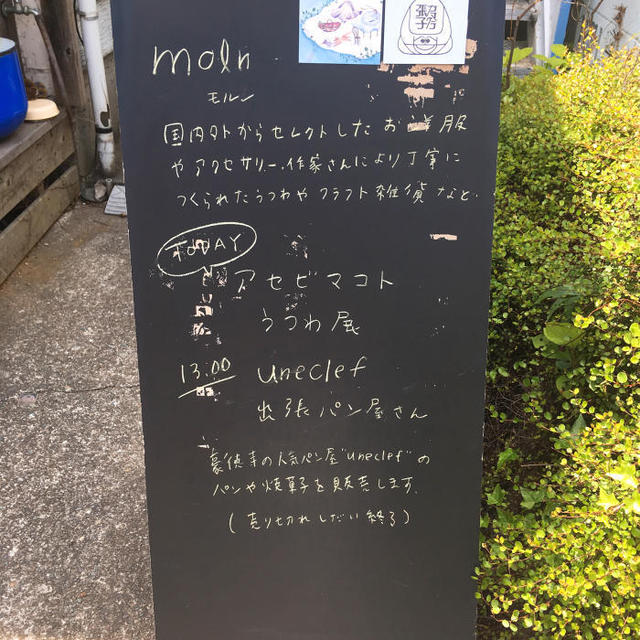 張子
moln
モルン
国内外からセレクトしたお洋服
やアクセサリー、作家さんにより丁寧に
つくられたうつわやクラフト雑貨など。
TODAY
アセビマコト
うつわ展
13:00 uneclef
出張パン屋さん
豪徳寺の人気パン屋"uneclef"の
パンや焼菓子を販売します。
(売り切れしだい終了)